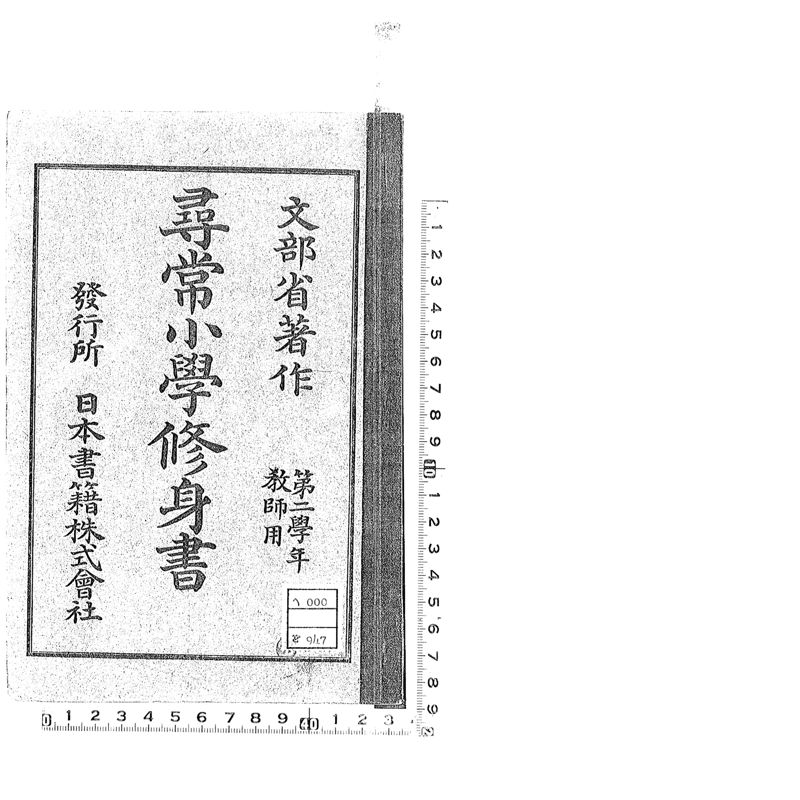 文部省著作
第二學年
教師用
尋常小學修身書
發行所 日本書籍株式會社
000
1 2 3 4 5 6 7 8 9 10 1 2 3
1 2 3 4 5 6 7 8 9 10 1 2 3 4 5 6 7 8 9